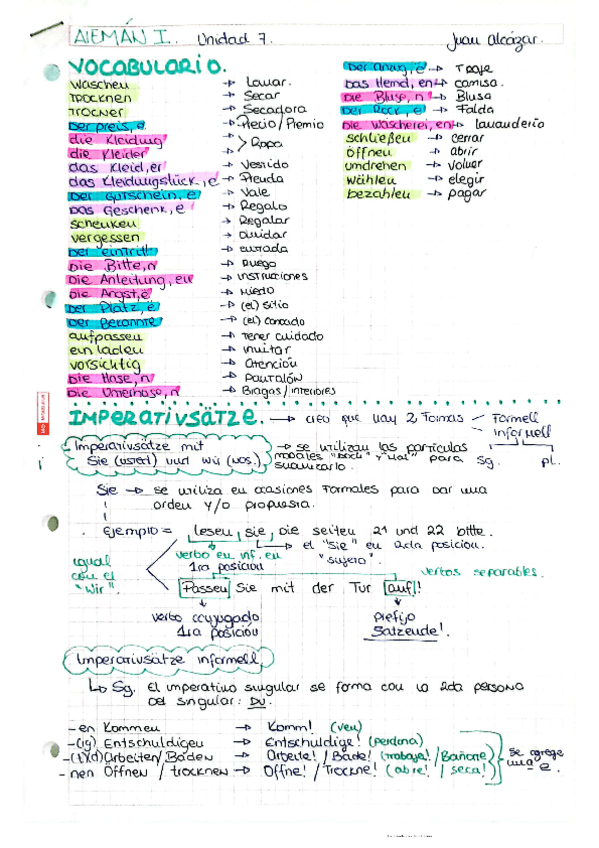 ALEMÁN I. Unidad 7. Juan Alcázar.
VOCABULARIO.
Waschen → Lavar.
Trocknen → Secar
Trocner → Secadora
Der preis, e → Precio / Premio
die Kleidung
die Kleider
> Ropa
das Kleid, er → Vestido
das Kleidungstück, e → Prenda
Der Gutschein, e → Vale
Das Geschenk, e → Regalo
schenken → Regalar
vergessen → Olvidar
Der eintritt → entrada
Die Bitte, n → Ruego
Die Anleitung, en → Instrucciones
Die Angst, ë → Miedo
Der Platz, ë → (el) sitio
Der Bekannte → (el) conocido
aufpassen → Tener cuidado
einladen → invitar
vorsichtig → Atención
Die Hose, n → Pantalón
Die Unerhose, n → Bragas / interiores
Der Anzug, ë → Traje
Das Hemd, en → camisa.
Die Bluse, n → Blusa
Der Rock, ë → Falda
Die Wäscherei, en → lavandería
schließen → cerrar
öffnen → abrir
umdrehen → volver
wählen → elegir
bezahlen → pagar
IMPERATIVSÄTZE. → creo que hay 2 formas
Formell
informell
Sg. pl.
Imperativsätze mit
Sie (usted) und wir (nos.)
→ se utilizan las partículas
modales "doch" y "mal" para
suavizarlo.
Sie → se utiliza en ocasiones formales para dar una
orden y/o propuesta.
Ejemplo = Lesen, sie, die seiten 21 und 22 bitte.
verbo en inf. en
1ra posición
→ el "sie" en 2da posición.
"sujeto".
igual
con el
"wir".
verbos separables.
Passen Sie mit der Tur auf!
verbo conjugado
1ra posición
prefijo
Satzende!
Imperativsätze informell
↳ Sg. El imperativo singular se forma con la 2da persona
del singular: Du.
- en Kommen → Komm! (ven)
- (ig) Entschuldigen → Entschuldige! (perdona)
- (t/d) Arbeiten / Baden → Arbeite! / Bade! (trabaja! / Báñate
- nen Öffnen / trocknen → Öffne! / Trockne! (abre! / seca!)
se agrega
una e.